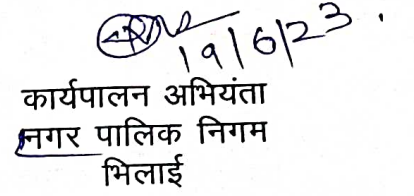 19/6/23.
कार्यपालन अभियंता
नगर पालिक निगम
भिलाई